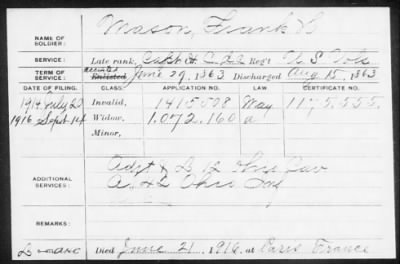 NAME OF SOLDIER: Mason, Frank H
SERVICE: Late rank, Capt & A. D. C. Reg't U S Vols
TERM OF SERVICE: Enlisted June 29, 1863 Discharged Aug 15, 1863
DATE OF FILING. CLASS. APPLICATION NO. LAW. CERTIFICATE NO.
1914 July 20 Invalid, 1415508 May 1175.555.
1916 Sept 14 Widow, 1.072.160 a
Minor,
ADDITIONAL SERVICES: Adjt & L 12 Ohio Cav
A. 42 Ohio Inf
REMARKS:
Died June 21, 1916, at Paris France